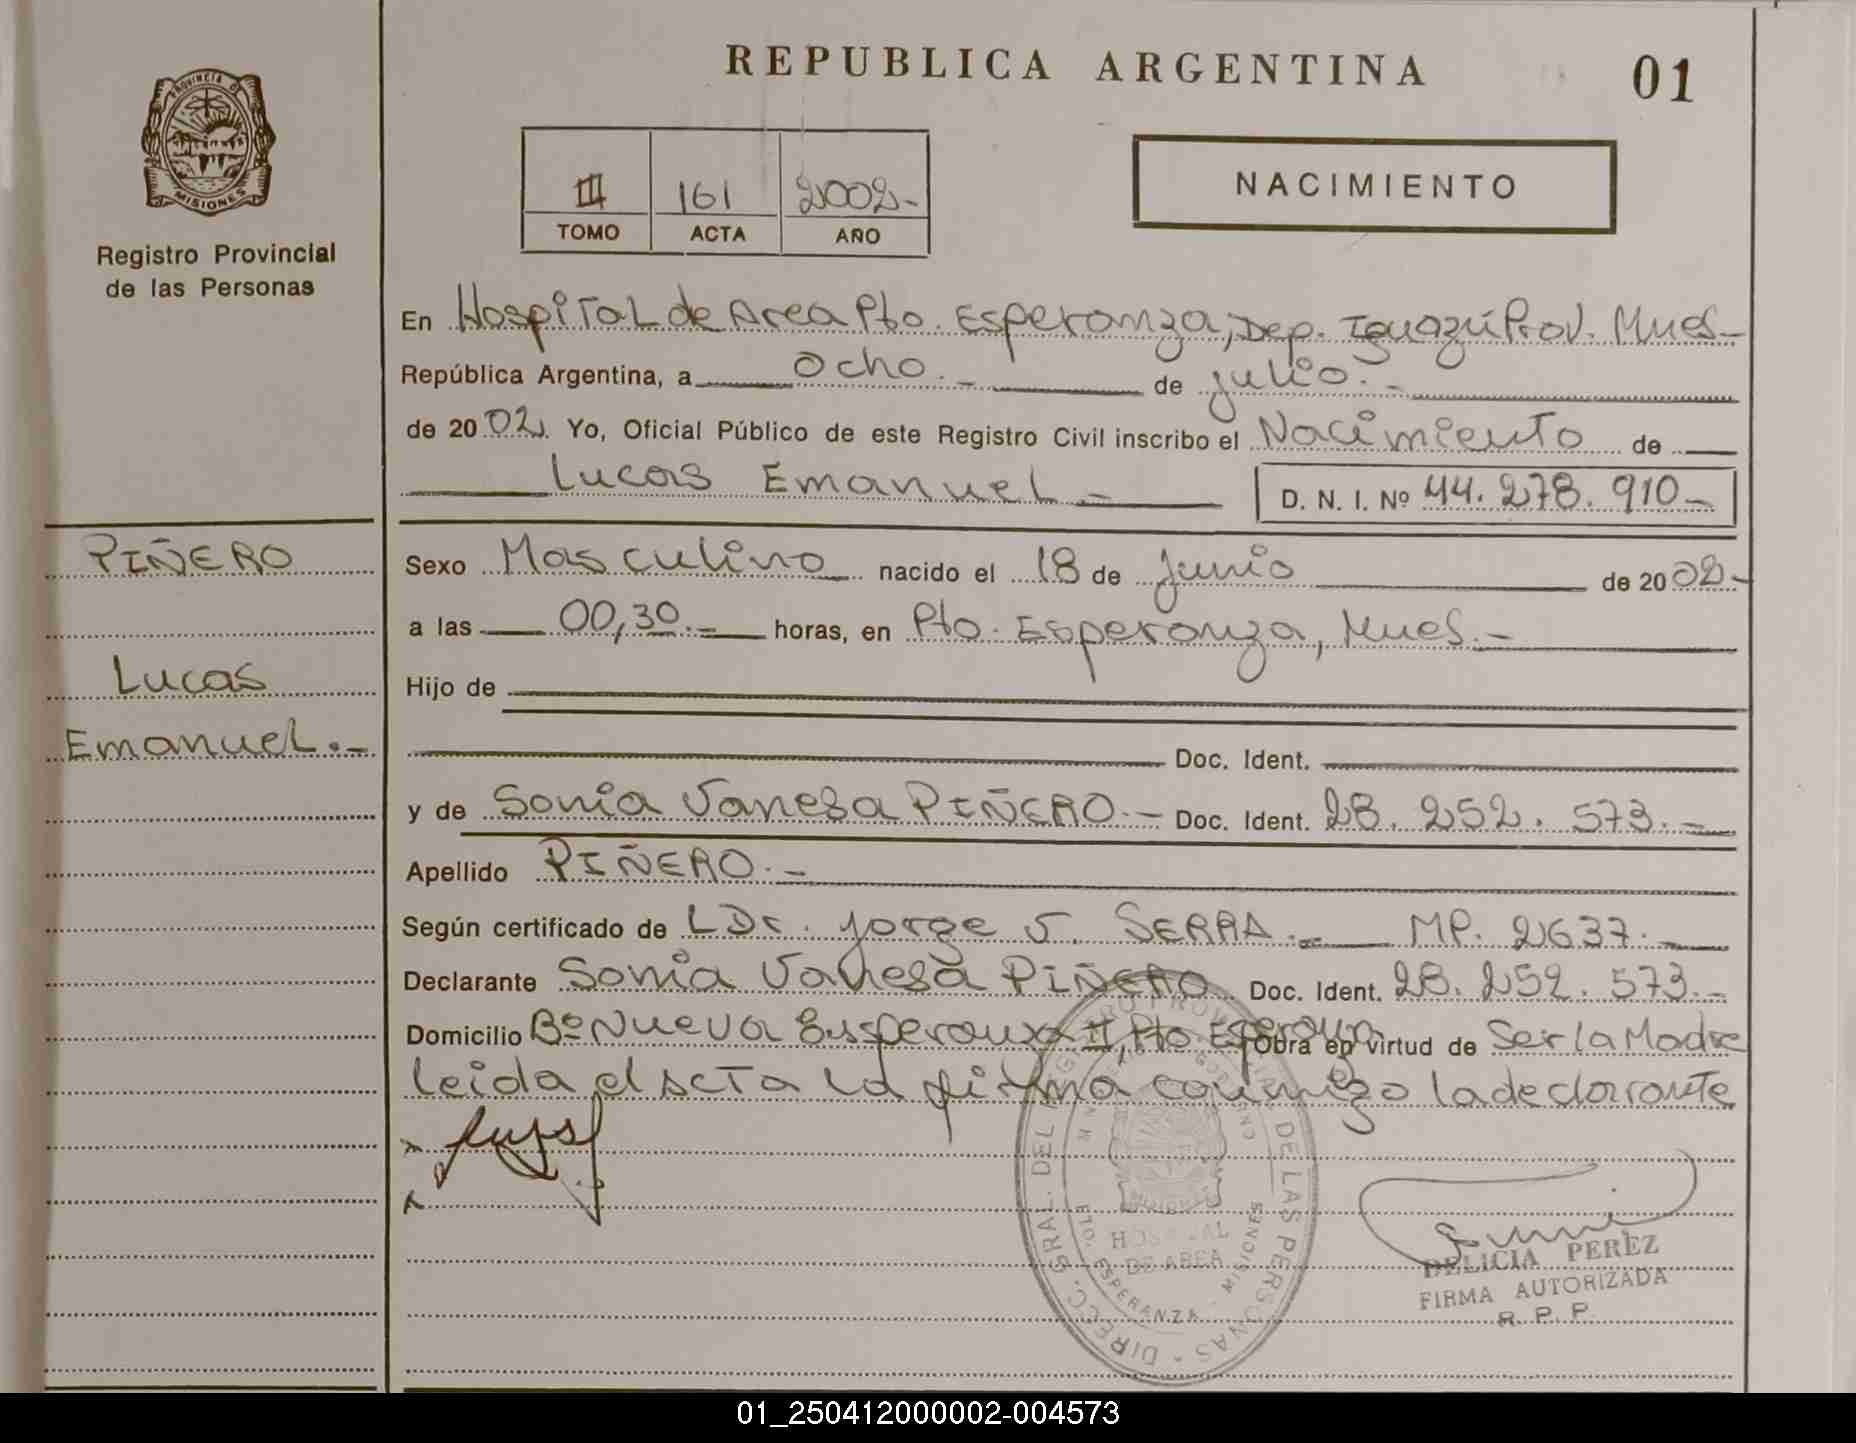 REPUBLICA ARGENTINA
01
PROVINCIA DE
MISIONES
Registro Provincial
de las Personas
III 161 2002-
TOMO ACTA AÑO
NACIMIENTO
En Hospital de Area Pto. Esperanza, Dep. Iguazú Prov. Mnes-
República Argentina, a ocho.- de julio.-
de 2002. Yo, Oficial Público de este Registro Civil inscribo el Nacimiento de
Lucas Emanuel - D. N. I. Nº 44.278.910-
PIÑERO
Lucas
Emanuel.-
Sexo Masculino nacido el 18 de Junio de 2002-
a las 00,30.- horas, en Pto. Esperanza, Mnes.-
Hijo de
Doc. Ident.
y de Sonia Vanesa PIÑERO.- Doc. Ident. 28.252.573.-
Apellido PIÑERO.-
Según certificado de LDr. Jorge J. SERRA.- MP. 2637.-
Declarante Sonia Vanesa PIÑERO Doc. Ident. 28.252.573.-
Domicilio Bº Nueva Esperanza II, Pto Esperanza Obra en virtud de Ser la Madre
leida el acta la firma conmigo la declarante
DIRECC. GRAL. DEL REGISTRO PROVINCIAL DE LAS PERSONAS
HOSPITAL
DE AREA
PTO. ESPERANZA - MISIONES
DELICIA PEREZ
FIRMA AUTORIZADA
R. P. P.
01_250412000002-004573